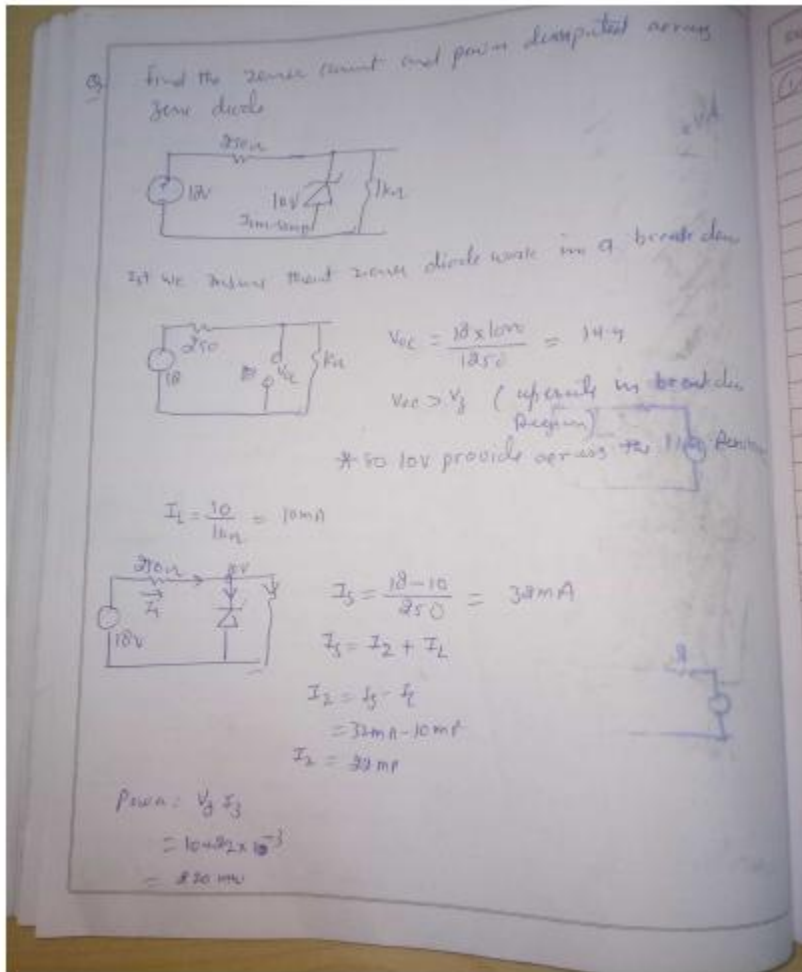 Q. find the zener current and power dissipated across
zene diode
250Ω
18V
10V
1kΩ
Ist we assume that zener diode work in a break down
250
18
Voc
1kΩ
Voc = 18 x 1000 / 1250 = 14.4
Voc > Vz (operate in break down
Region)
* so 10V provide across the
IL = 10 / 1kΩ = 10mA
250Ω
10V
18V
Is = 18-10 / 250 = 32mA
Is = Iz + IL
Iz = Is - IL
= 32mA - 10mA
Iz = 22mA
Power = Vz Iz
= 10 x 22 x 10-3
= 220 mw